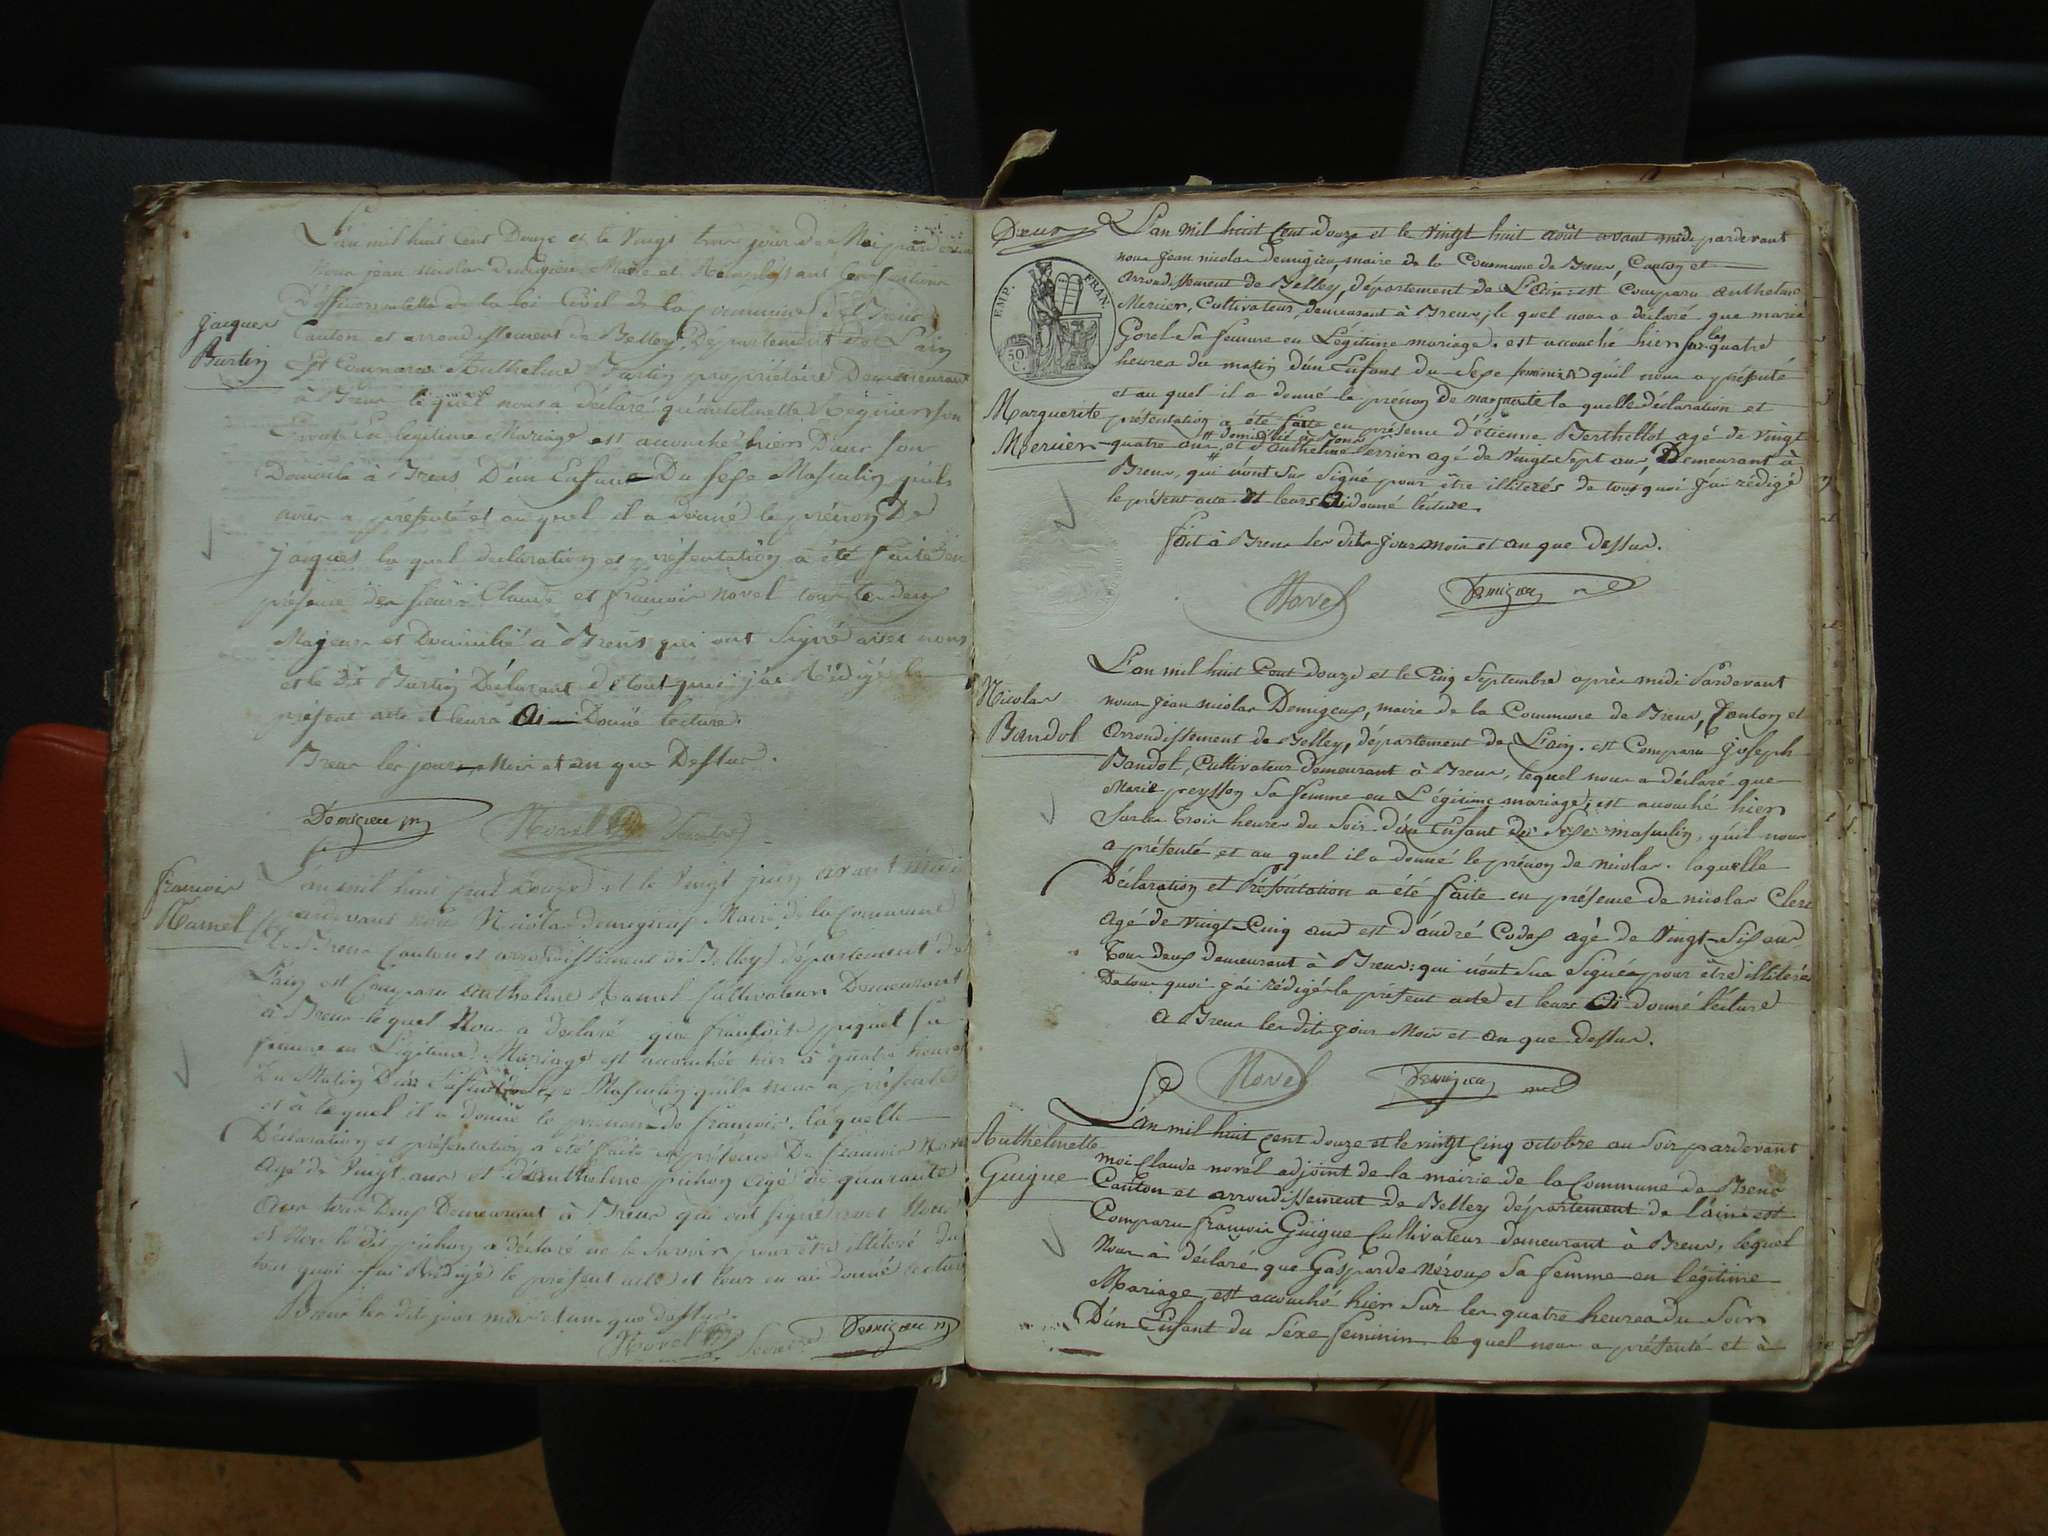 Jacques
Burtin
L'an mil huit Cent Douze et le Vingt trois jour de Mai pardevant
nous jean nicolas Demigieu Maire et Remplissant les fonctions
D'officier public de la loi Civil de la commune De Brens
Canton et arrondissement de Belley, Département De L'ain
Est Comparu Anthelme Burtin propriétaire Demeurant
à Brens le quel nous a déclaré qu'anthelmette Meguier son
En legitime Mariage est accouchée hier Dans son
Domicile à Brens D'un Enfant Du sexe Masculin quils
nous a présenté et au quel il a donné le prénom De
jacques la quel declaration et présentation a été faite en
présence des sieurs Claude et françois novel tous les deux
Majeurs et Domicilié à Brens qui ont Signé avec nous
et le dit Burtin Déclarant de tout quoi j'ai Rédigé le
présent acte et leurs Ai Donné lecture.
Brens les jours Mois et an que Dessus.
Demigieu m Novel Secrétaire
françois
Ramel
L'an mil huit cent Douze et le Vingt juin avant midi
pardevant nous Nicolas demigieux Maire de la Commune
de Brens Canton et arrondissement de Belley département de
L'ain est Comparu anthelme Ramel Cultivateur Demeurant
à Brens le quel Nous a déclaré que françoise piquet sa
femme en Légitime Mariage est accouchée hier à quatre heures
Du Matin D'un Enfant Sexe Masculin quils nous a présenté
et à le quel il a donné le prénom de françois, laquelle
Déclaration et présentation a été faite en présence De françois Novel
agé de Vingt ans et d'anthelme pichon agé de quarante
ans tous Deux Demeurant à Brens qui ont signé avec Nous
et Non le dit pichon a déclaré ne le savoir pour être illitéré du
tout quoi j'ai Rédigé le present acte et leur en ai donné lecture
Brens les dits jour mois et an que dessus.
Novel Secretaire Demigieu m
L'an mil huit Cent douze et le Vingt huit août avant midi pardevant
nous Jean nicolas Demigieu, maire de la Commune de Brens, Canton et
EMP. FRAN.
50 C.
arrondissement de Belley, département de L'ain: est Comparu anthelme
Merier, Cultivateur, demeurant à Brens, le quel nous a déclaré que marie
Gorel Sa femme en Légitime mariage, est accouché hier sur les quatre
heures du matin d'un Enfant du Sexe feminin quil nous a présenté
et au quel il a donné le prénom de marguerite la quelle déclaration et
Marguerite
Merier
présentation a été faite en présence d'étienne Berthellot agé de Vingt
quatre ans # domicilié à Brens et d'anthelme Perrier agé de Vingt Sept ans, Demeurant à
Brens, qui n'ont Sus Signé pour être illiterés de tous quoi j'ai rédigé
le présent acte et leurs Ai donné lecture.
fait à Brens les dits jour mois et an que dessus.
Novel Demigieu
Nicolas
Bandol
L'an mil huit Cent douze et le Cinq Septembre après midi Pardevant
nous jean nicolas Demigieux, maire de la Commune de Brens, Canton et
Arrondissement de Belley, département de L'ain. est Comparu joseph
Bandot, Cultivateur demeurant à Brens, lequel nous a déclaré que
Marie preysson Sa femme en Légitime mariage, est accouché hier
Sur les Trois heures du Soir d'un Enfant du Sexe masculin, quil nous
a présenté et au quel il a donné le prénom de nicolas. laquelle
Déclaration et Présentation a été faite en présence de nicolas Clerc
Agé de Vingt-Cinq ans est d'andré Codex agé de Vingt-Six ans
Tous deux demeurant à Brens: qui n'ont Sus Signé pour être illiterés
De tous quoi j'ai rédigé le présent acte et leurs Ai donné lecture
A Brens les dits jour Mois et an que dessus.
Novel Demigieu
Anthelmette
Guigue
L'an mil huit cent douze et le vingt Cinq octobre au Soir pardevant
moi Claude novel adjoint de la mairie de la Commune de Brens
Canton et arrondissement de Belley département de l'ain: est
Comparu françois Guigue Cultivateur demeurant à Brens, lequel
Nous à déclaré que Gasparde Néroux Sa femme en légitime
Mariage, est accouché hier Sur les quatre heures du Soir
D'un Enfant du Séxe féminin le quel nous a présenté et à